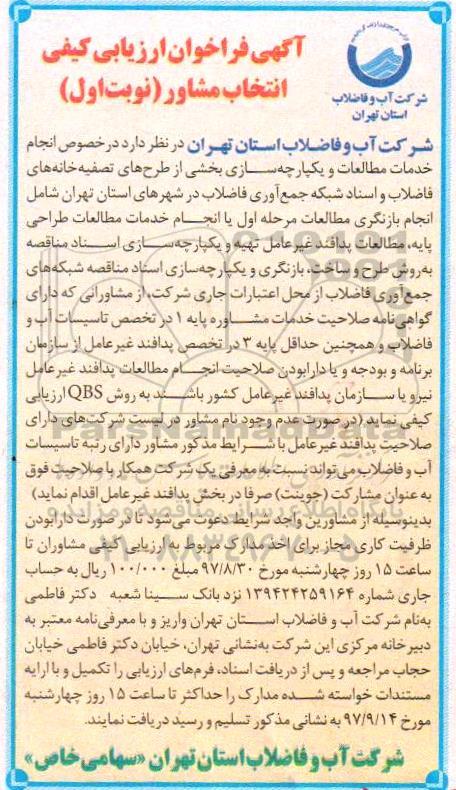 آگهی فراخوان ارزیابی کیفی
انتخاب مشاور (نوبت اول)
شرکت آب و فاضلاب
استان تهران
شرکت آب و فاضلاب استان تهران در نظر دارد در خصوص انجام
خدمات مطالعات و یکپارچه‌سازی بخشی از طرح‌های تصفیه‌خانه‌های
فاضلاب و اسناد شبکه جمع‌آوری فاضلاب در شهرهای استان تهران شامل
انجام بازنگری مطالعات مرحله اول یا انجام خدمات مطالعات طراحی
پایه، مطالعات پدافند غیرعامل تهیه و یکپارچه‌سازی اسناد مناقصه
به‌روش طرح و ساخت، بازنگری و یکپارچه‌سازی اسناد مناقصه شبکه‌های
جمع‌آوری فاضلاب از محل اعتبارات جاری شرکت، از مشاورانی که دارای
گواهی‌نامه صلاحیت خدمات مشاوره پایه ۱ در تخصص تاسیسات آب و
فاضلاب و همچنین حداقل پایه ۳ در تخصص پدافند غیرعامل از سازمان
برنامه و بودجه و یا دارا بودن صلاحیت انجام مطالعات پدافند غیرعامل
نیرو یا سازمان پدافند غیرعامل کشور باشند به روش QBS ارزیابی
کیفی نماید (در صورت عدم وجود نام مشاور در لیست شرکت‌های دارای
صلاحیت پدافند غیرعامل با شرایط مذکور مشاور دارای رتبه تاسیسات
آب و فاضلاب می‌تواند نسبت به معرفی یک شرکت همکار با صلاحیت فوق
به عنوان مشارکت (جوینت) صرفا در بخش پدافند غیرعامل اقدام نماید)
بدینوسیله از مشاورین واجد شرایط دعوت می‌شود تا در صورت دارا بودن
ظرفیت کاری مجاز برای اخذ مدارک مربوط به ارزیابی کیفی مشاوران تا
ساعت ۱۵ روز چهارشنبه مورخ ۹۷/۸/۳۰ مبلغ ۱۰۰/۰۰۰ ریال به حساب
جاری شماره ۱۳۹۴۲۴۲۵۹۱۶۴ نزد بانک سینا شعبه دکتر فاطمی
به‌نام شرکت آب و فاضلاب استان تهران واریز و با معرفی‌نامه معتبر به
دبیرخانه مرکزی این شرکت به‌نشانی تهران، خیابان دکتر فاطمی خیابان
حجاب مراجعه و پس از دریافت اسناد، فرم‌های ارزیابی را تکمیل و با ارایه
مستندات خواسته شده مدارک را حداکثر تا ساعت ۱۵ روز چهارشنبه
مورخ ۹۷/۹/۱۴ به نشانی مذکور تسلیم و رسید دریافت نمایند.
شرکت آب و فاضلاب استان تهران «سهامی خاص»
پایگاه اطلاع رسانی مناقصه و مزایده
۰۲۱-۸۸۳۴۹۶۷۰-۵